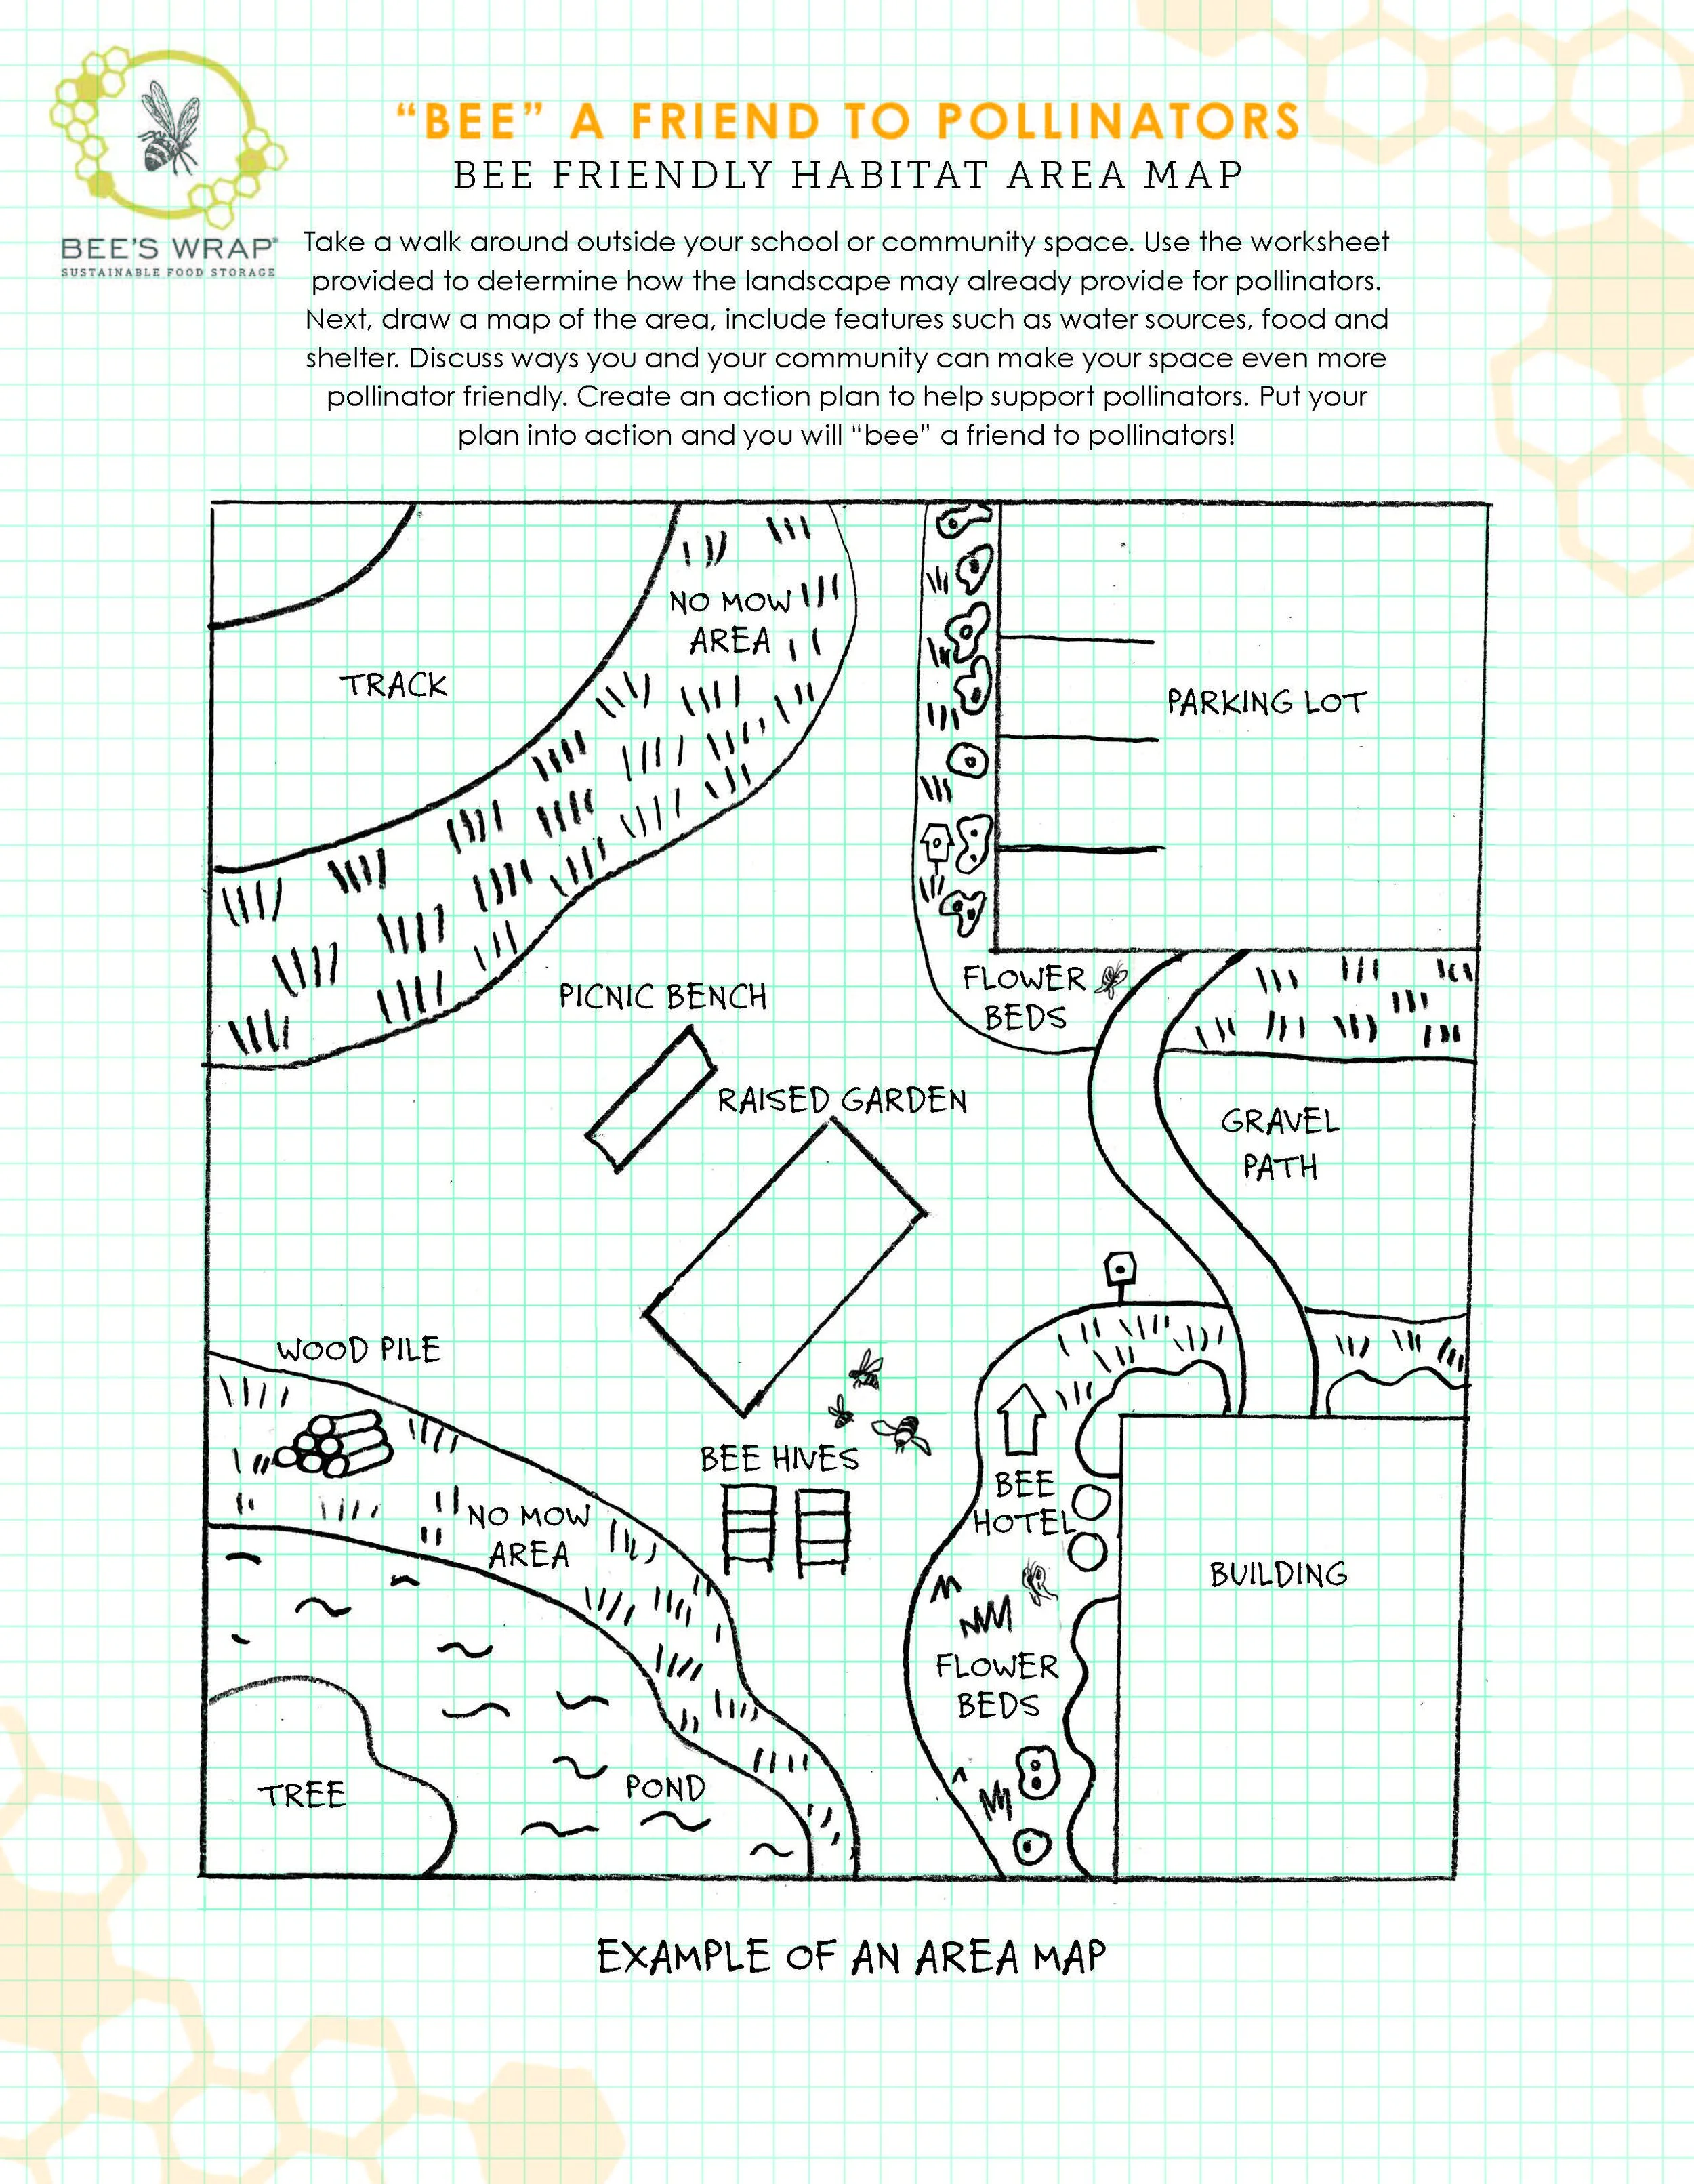 “BEE” A FRIEND TO POLLINATORS
BEE FRIENDLY HABITAT AREA MAP
BEE'S WRAP®
SUSTAINABLE FOOD STORAGE
Take a walk around outside your school or community space. Use the worksheet
provided to determine how the landscape may already provide for pollinators.
Next, draw a map of the area, include features such as water sources, food and
shelter. Discuss ways you and your community can make your space even more
pollinator friendly. Create an action plan to help support pollinators. Put your
plan into action and you will “bee” a friend to pollinators!
NO MOW
AREA
TRACK
PARKING LOT
FLOWER
BEDS
PICNIC BENCH
RAISED GARDEN
GRAVEL
PATH
WOOD PILE
BEE HIVES
BEE
HOTEL
NO MOW
AREA
BUILDING
FLOWER
BEDS
TREE
POND
EXAMPLE OF AN AREA MAP